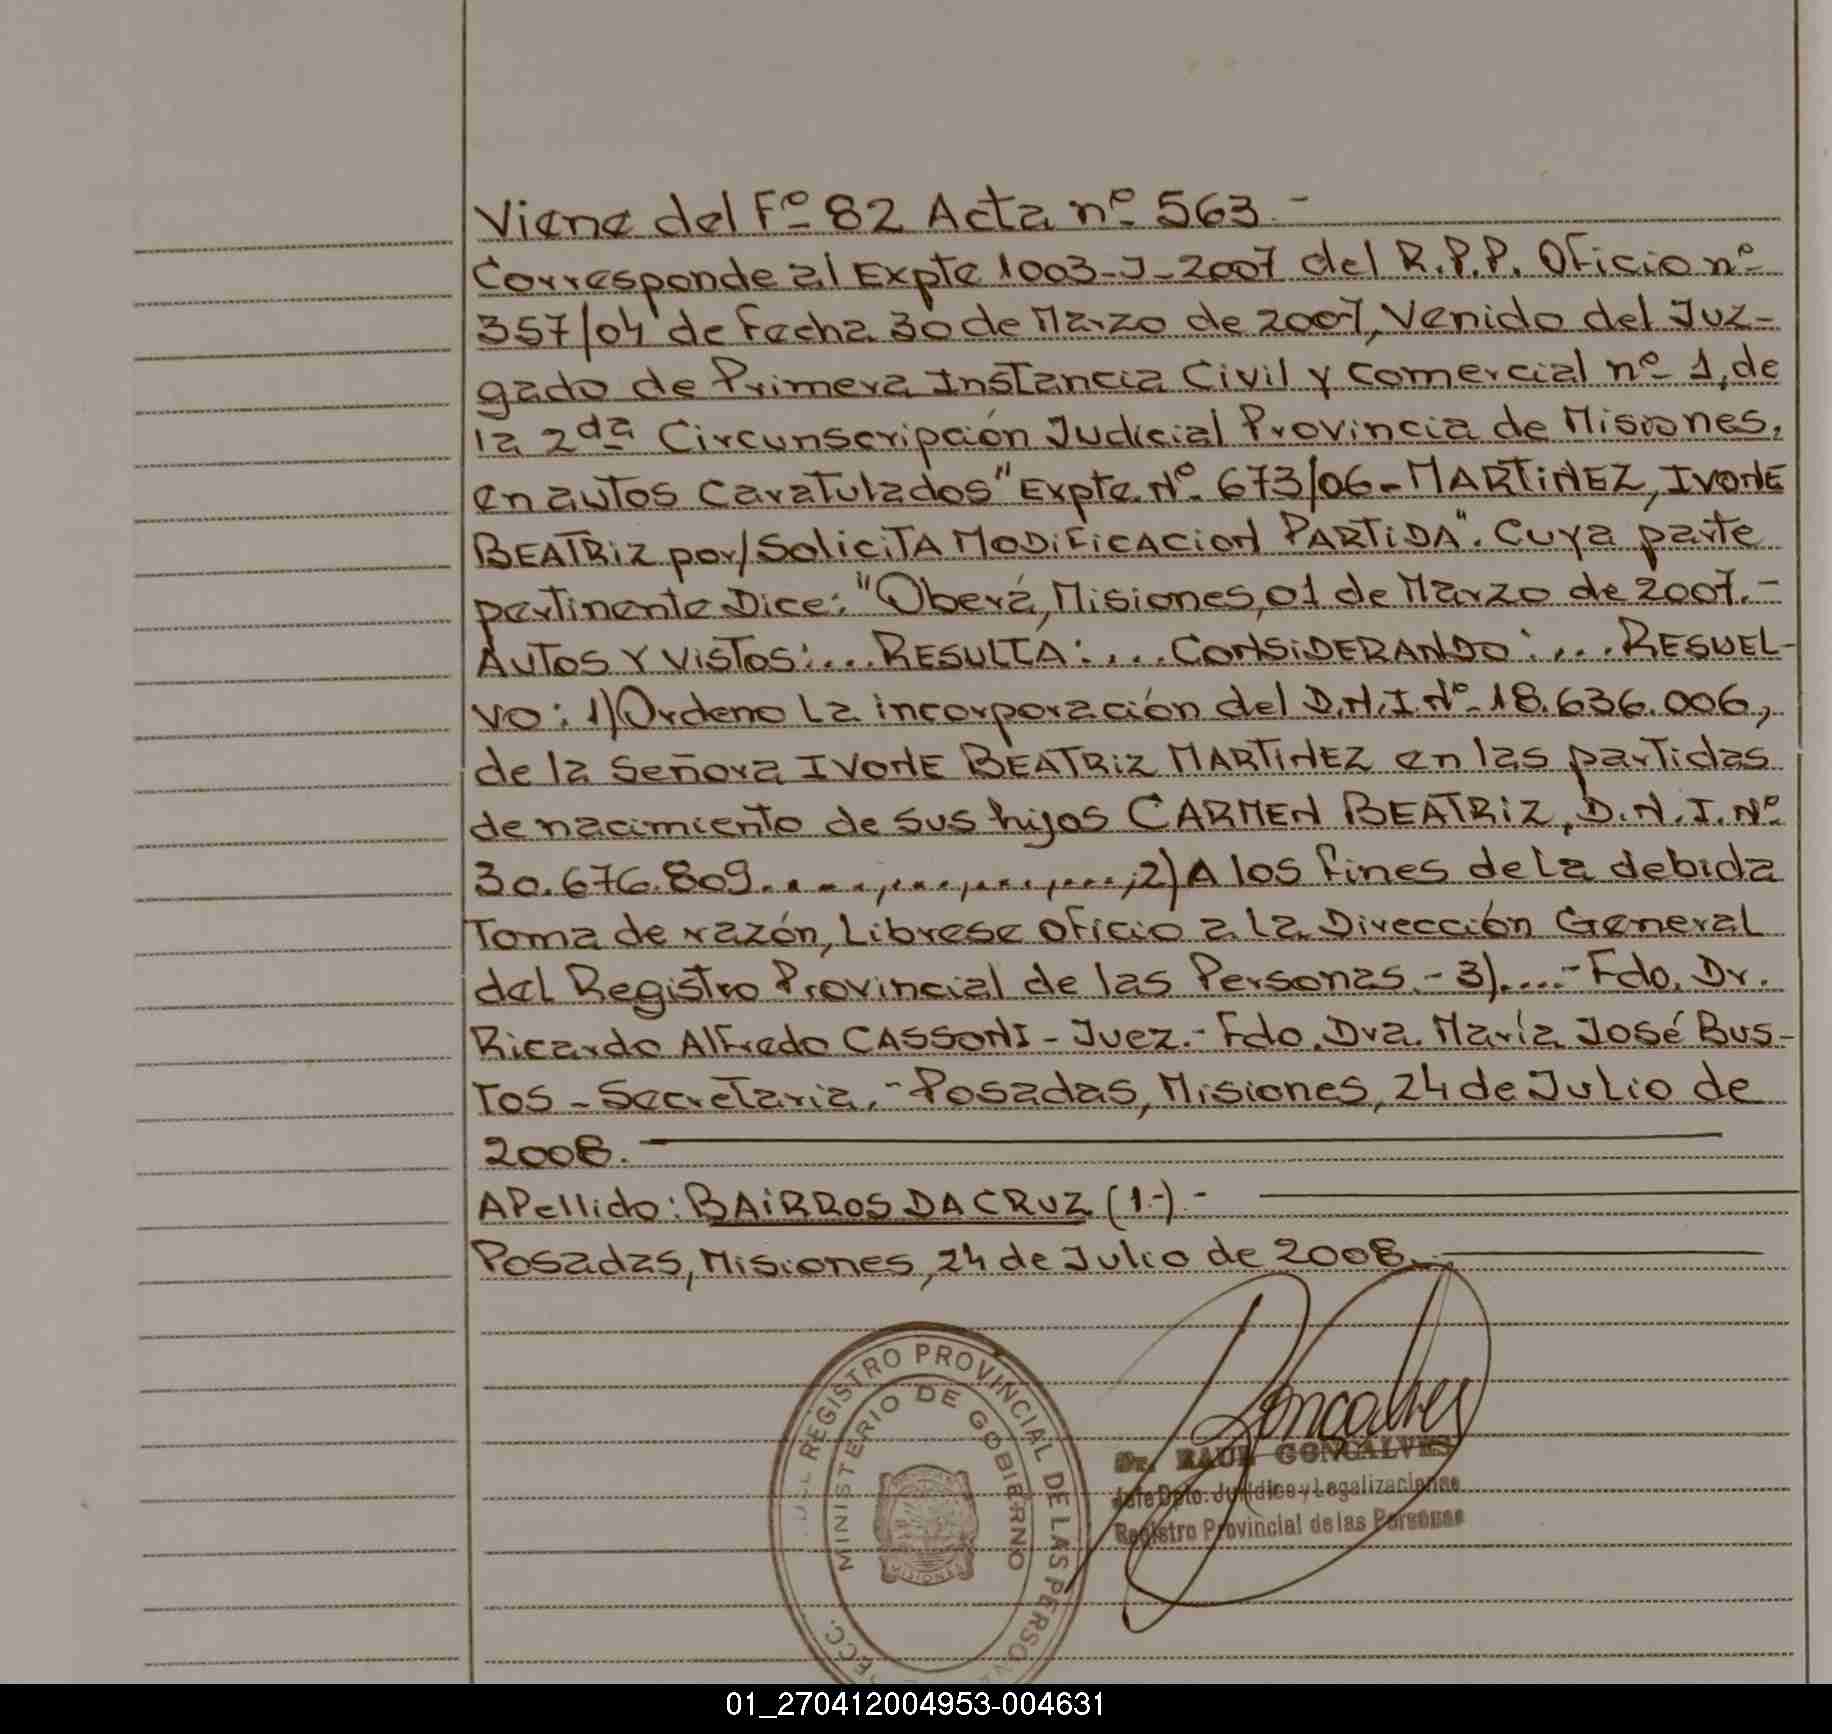 Viene del Fº 82 Acta nº 563.-
Corresponde al Expte 1003-J-2007 del R.P.P. Oficio nº
357/04 de Fecha 30 de Marzo de 2007, Venido del Juz-
gado de Primera Instancia Civil y Comercial nº 1, de
la 2da Circunscripción Judicial Provincia de Misiones,
en autos Caratulados "Expte. Nº 673/06 - MARTINEZ, IVONE
BEATRIZ por/Solicita MODIFICACION PARTIDA". Cuya parte
pertinente Dice: "Oberá, Misiones, 01 de Marzo de 2007.-
AUTOS Y VISTOS:... RESULTA:... CONSIDERANDO:... RESUEL-
VO: 1) Ordeno La incorporación del D.N.I. Nº 18.636.006,
de la Señora IVONE BEATRIZ MARTINEZ en las partidas
de nacimiento de sus hijos CARMEN BEATRIZ, D.N.I. Nº
30.676.809.......,...,...,...,...;2) A los fines de La debida
Toma de razón, Librese oficio a La Dirección General
del Registro Provincial de las Personas.- 3)....- Fdo. Dr.
Ricardo Alfredo CASSONI - Juez.- Fdo. Dra. María José Bus-
tos - Secretaria.- Posadas, Misiones, 24 de Julio de
2008.
Apellido: BAIRROS DA CRUZ (1.-) -
Posadas, Misiones, 24 de Julio de 2008.
REGISTRO PROVINCIAL DE LAS PERSON
MINISTERIO DE GOBIERNO
MISIONES
Goncalves
Dr. RAUL GONCALVES
Jefe Dpto. Jurídico y Legalizaciones
Registro Provincial de las Personas
01_270412004953-004631